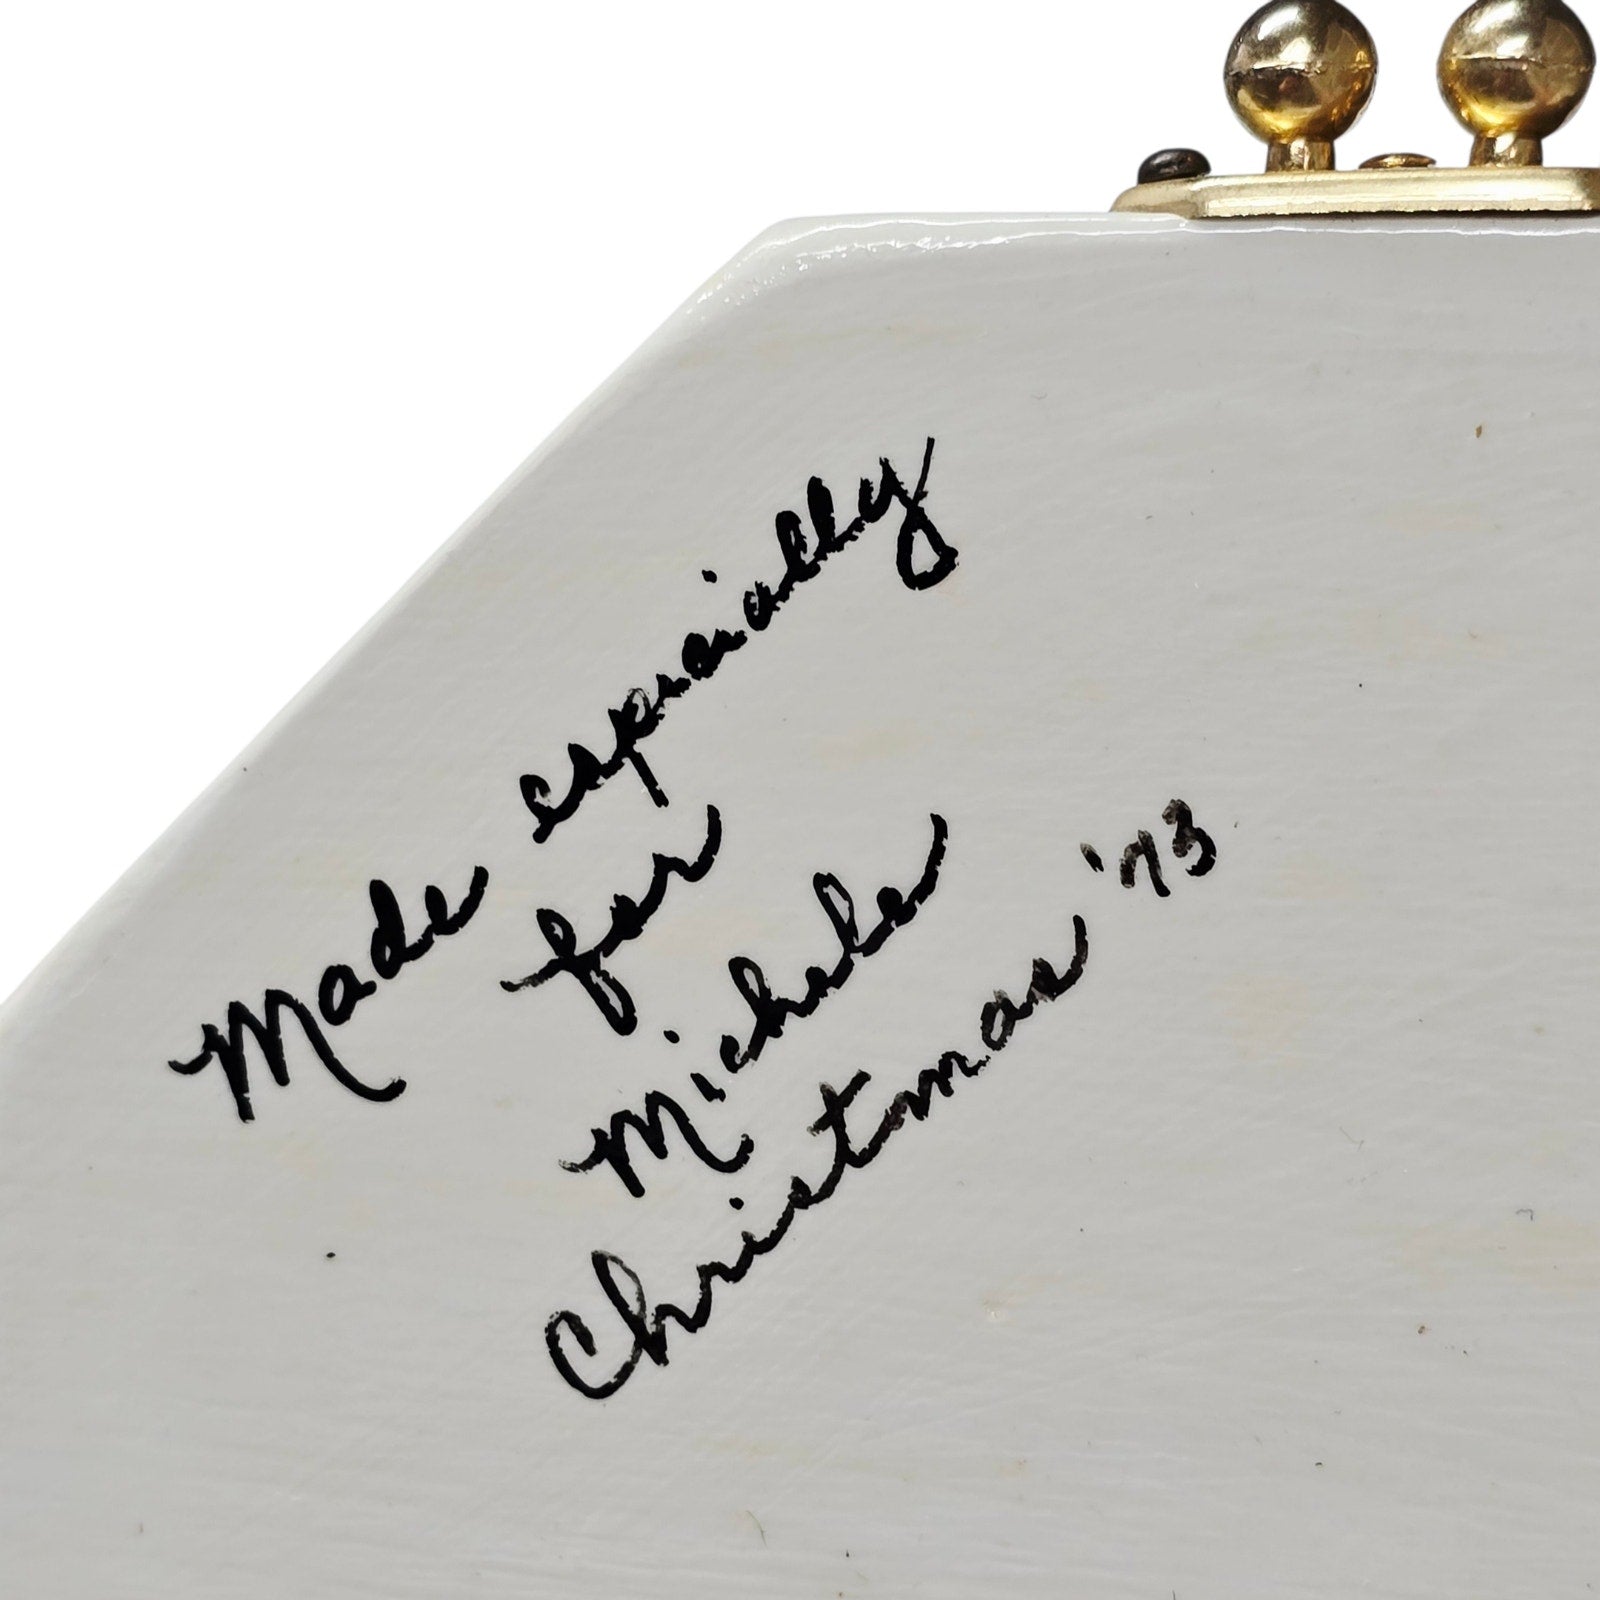 Made especially
for
Michele
Christmas '73